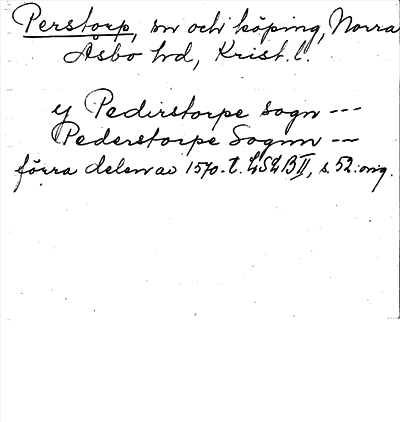 Perstorp, sn och köping, Norra
Åsbo hd, Krist. l.
y Pedirstorpe sogn ---
Pederstorpe Sognn ---
förra delen av 1570-t. LSLB II, s. 52. orig.